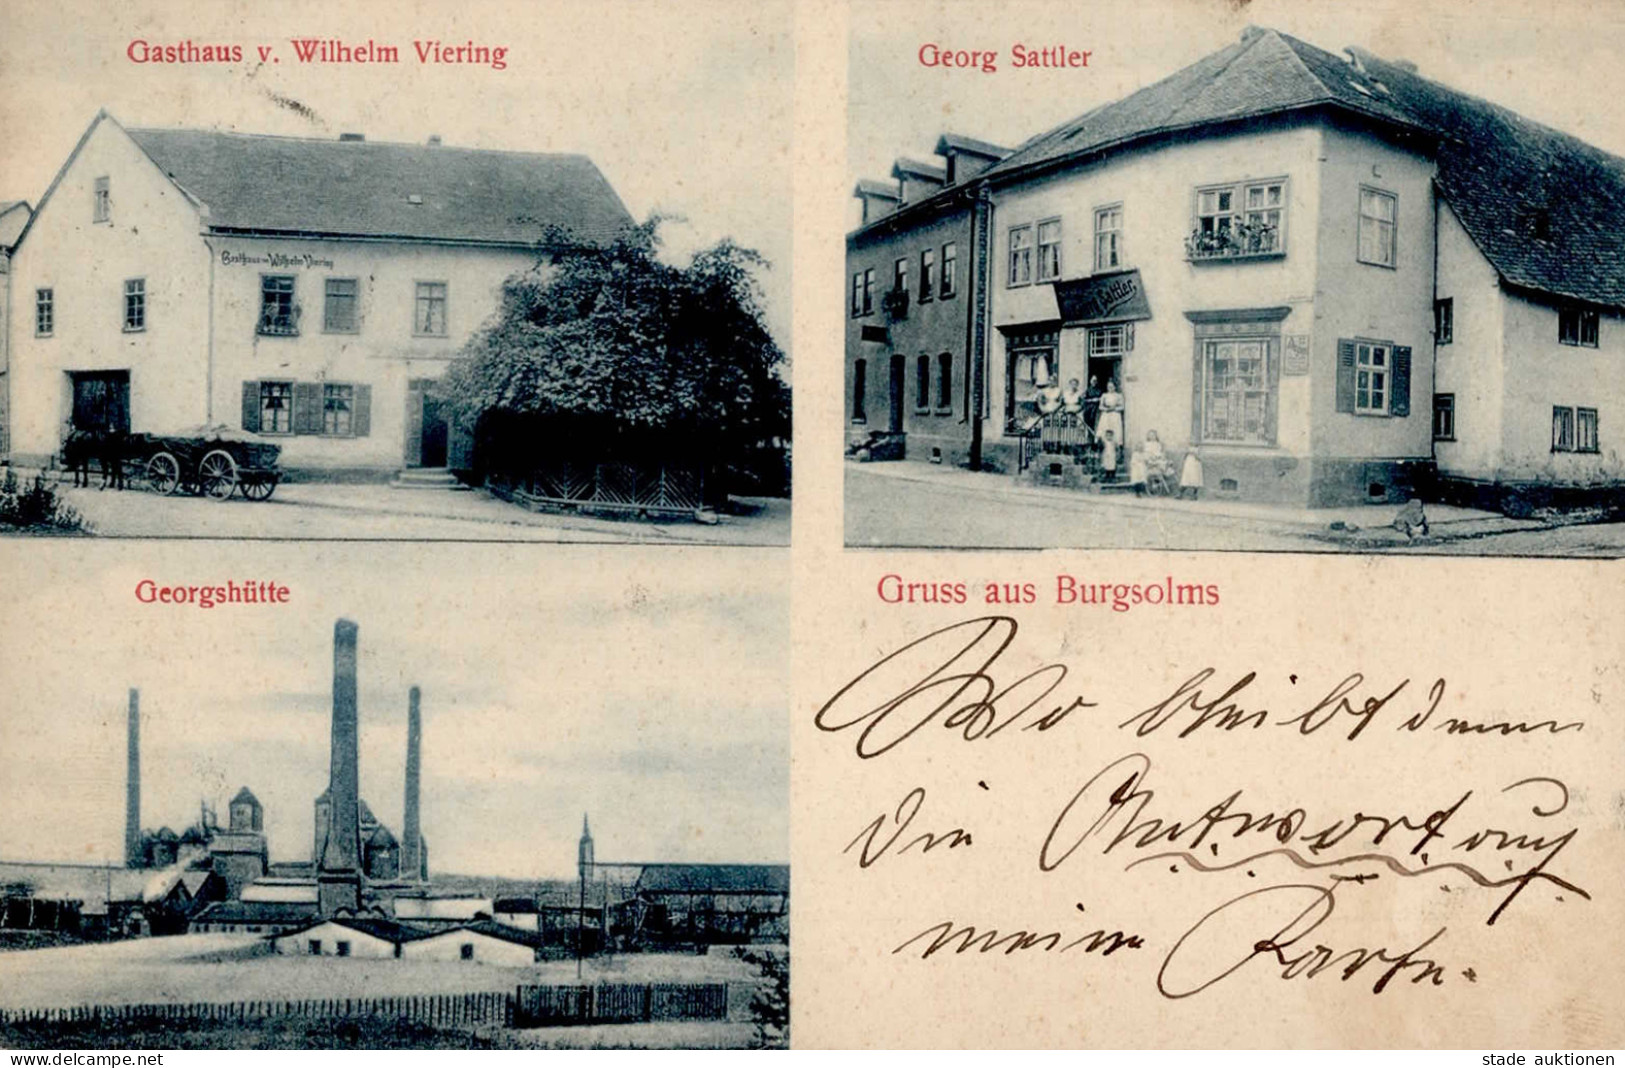 Gasthaus v. Wilhelm Viering
Gasthaus von Wilhelm Viering
Georg Sattler
Sattler,
Georgshütte
Gruss aus Burgsolms
Wo bleibt denn
die Antwort auf
meine Karte.
delcampe.net
stade auktionen